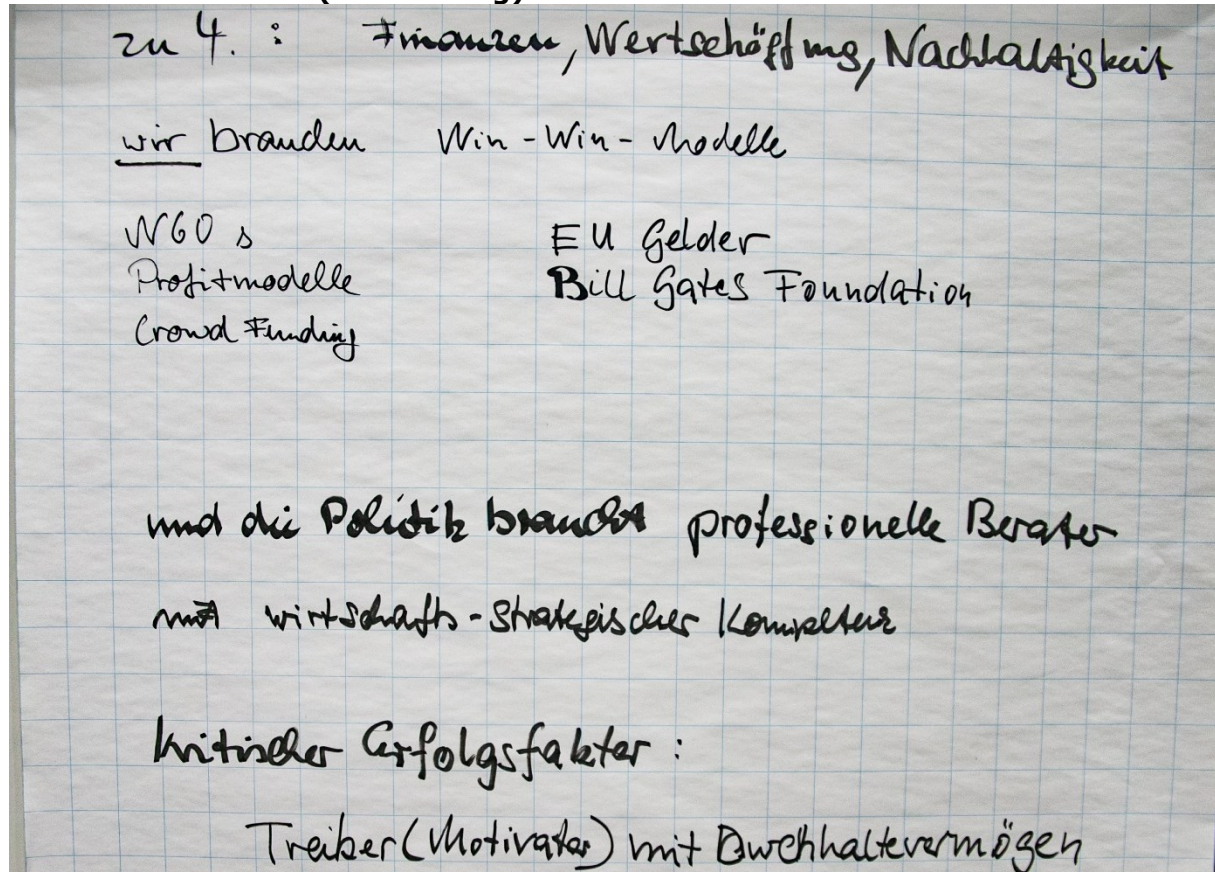 zu 4. : Finanzen, Wertschöffung, Nachhaltigkeit
wir branden Win-Win-Modelle
NGO s
Profitmodelle
Crowd Funding
EU Gelder
Bill Gates Foundation
und die Politik braucht professionelle Berater
mit wirtschafts-strategischer Kompetenz
kritischer Erfolgsfaktor :
Treiber (Motivator) mit Durchhaltevermögen